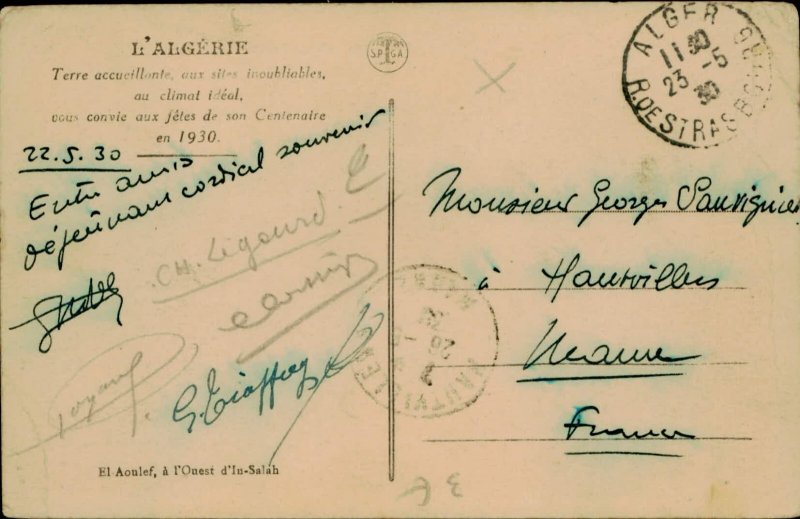 L'ALGÉRIE
Terre accueillante, aux sites inoubliables,
au climat idéal,
vous convie aux fêtes de son Centenaire
en 1930.
S.P.G.A.
22.5.30
Entre amis
déjeunant cordial souvenir
CH. Legourd
El-Aoulef, à l'Ouest d'In-Salah
ALGER
R. DE STRASBOURG
1130
23-5
30
Monsieur Georges Sauvignier
à
Hautvillers
Marne
France